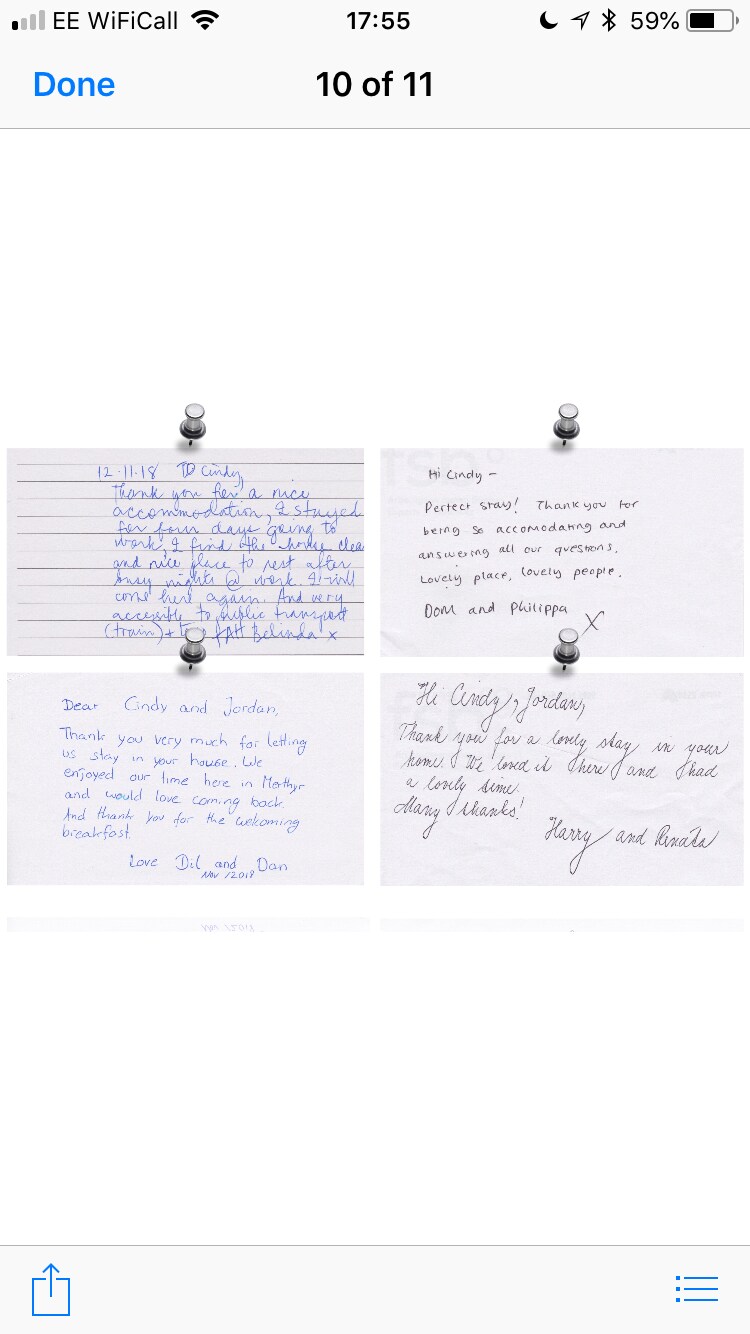 EE WiFiCall
17:55
59%
Done
10 of 11
12.11.18 TO Cindy,
Thank you for a nice
accommodation, I stayed
for four days going to
work, I find the house clea
and nice place to rest after
busy nights @ work. I will
come here again. And very
accesible to public transport
(train) + Belinda x
Hi Cindy -
Perfect stay! Thank you for
being so accomodating and
answering all our questions.
Lovely place, lovely people.
Dom and Philippa X
Dear Cindy and Jordan,
Thank you very much for letting
us stay in your house. We
enjoyed our time here in Merthyr
and would love coming back.
And thank you for the welcoming
breakfast.
Love Dil and Dan
Nov /2018
Hi Cindy, Jordan,
Thank you for a lovely stay in your
home. We loved it there and had
a lovely time.
Many thanks!
Harry and Renata